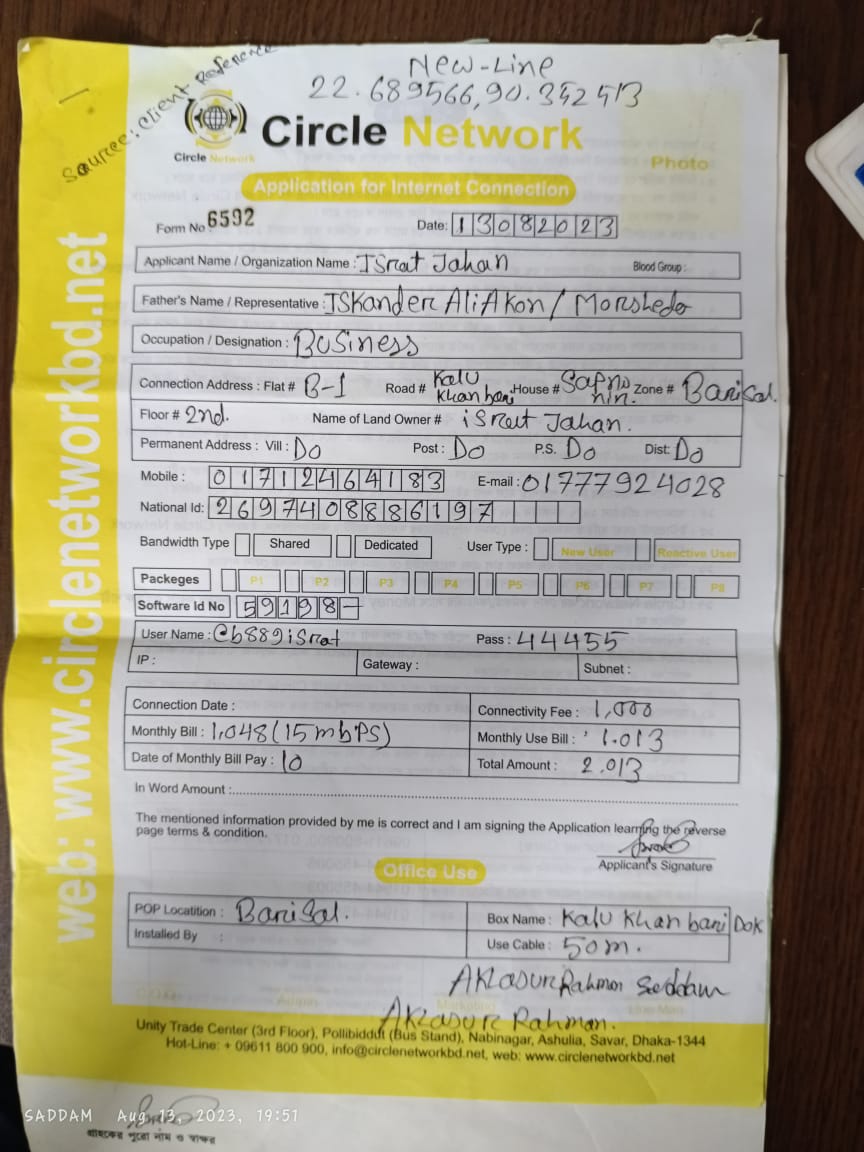 New-Line
22.689566,90.342513
Source: Client Reference
Circle Network
Circle Network
Photo
Application for Internet Connection
Form No 6592 Date: 13082023
Applicant Name / Organization Name : ISrat Jahan Blood Group :
Father's Name / Representative : ISkander Ali Akon / Morsheda
Occupation / Designation : Business
Connection Address : Flat # B-1 Road # Kalu Khan bari House # Sapno nir. Zone # Barisal.
Floor # 2nd. Name of Land Owner # iSrat Jahan.
Permanent Address : Vill : Do Post : Do P.S. Do Dist: Do
Mobile : 01712464183 E-mail : 01777924028
National Id: 2697408886197
Bandwidth Type Shared Dedicated User Type : New User Reactive User
Packeges P1 P2 P3 P4 P5 P6 P7 P8
Software Id No 59198-
User Name : Cb889iSrat Pass : 44455
IP : Gateway : Subnet :
Connection Date : Connectivity Fee : 1,000
Monthly Bill : 1,048 (15 mbPS) Monthly Use Bill : 1.013
Date of Monthly Bill Pay : 10 Total Amount : 2.013
In Word Amount :
The mentioned information provided by me is correct and I am signing the Application learning the reverse
page terms & condition.
Applicant's Signature
Office Use
POP Locatition : Barisal. Box Name : Kalu Khan bari Dok
Installed By : Use Cable : 50m.
Rahman Saddam
Rahman.
Unity Trade Center (3rd Floor), Pollibiddut (Bus Stand), Nabinagar, Ashulia, Savar, Dhaka-1344
Hot-Line: + 09611 800 900, info@circlenetworkbd.net, web: www.circlenetworkbd.net
web: www.circlenetworkbd.net
SADDAM Aug 13, 2023, 19:51
গ্রাহকের পুরো নাম ও স্বাক্ষর